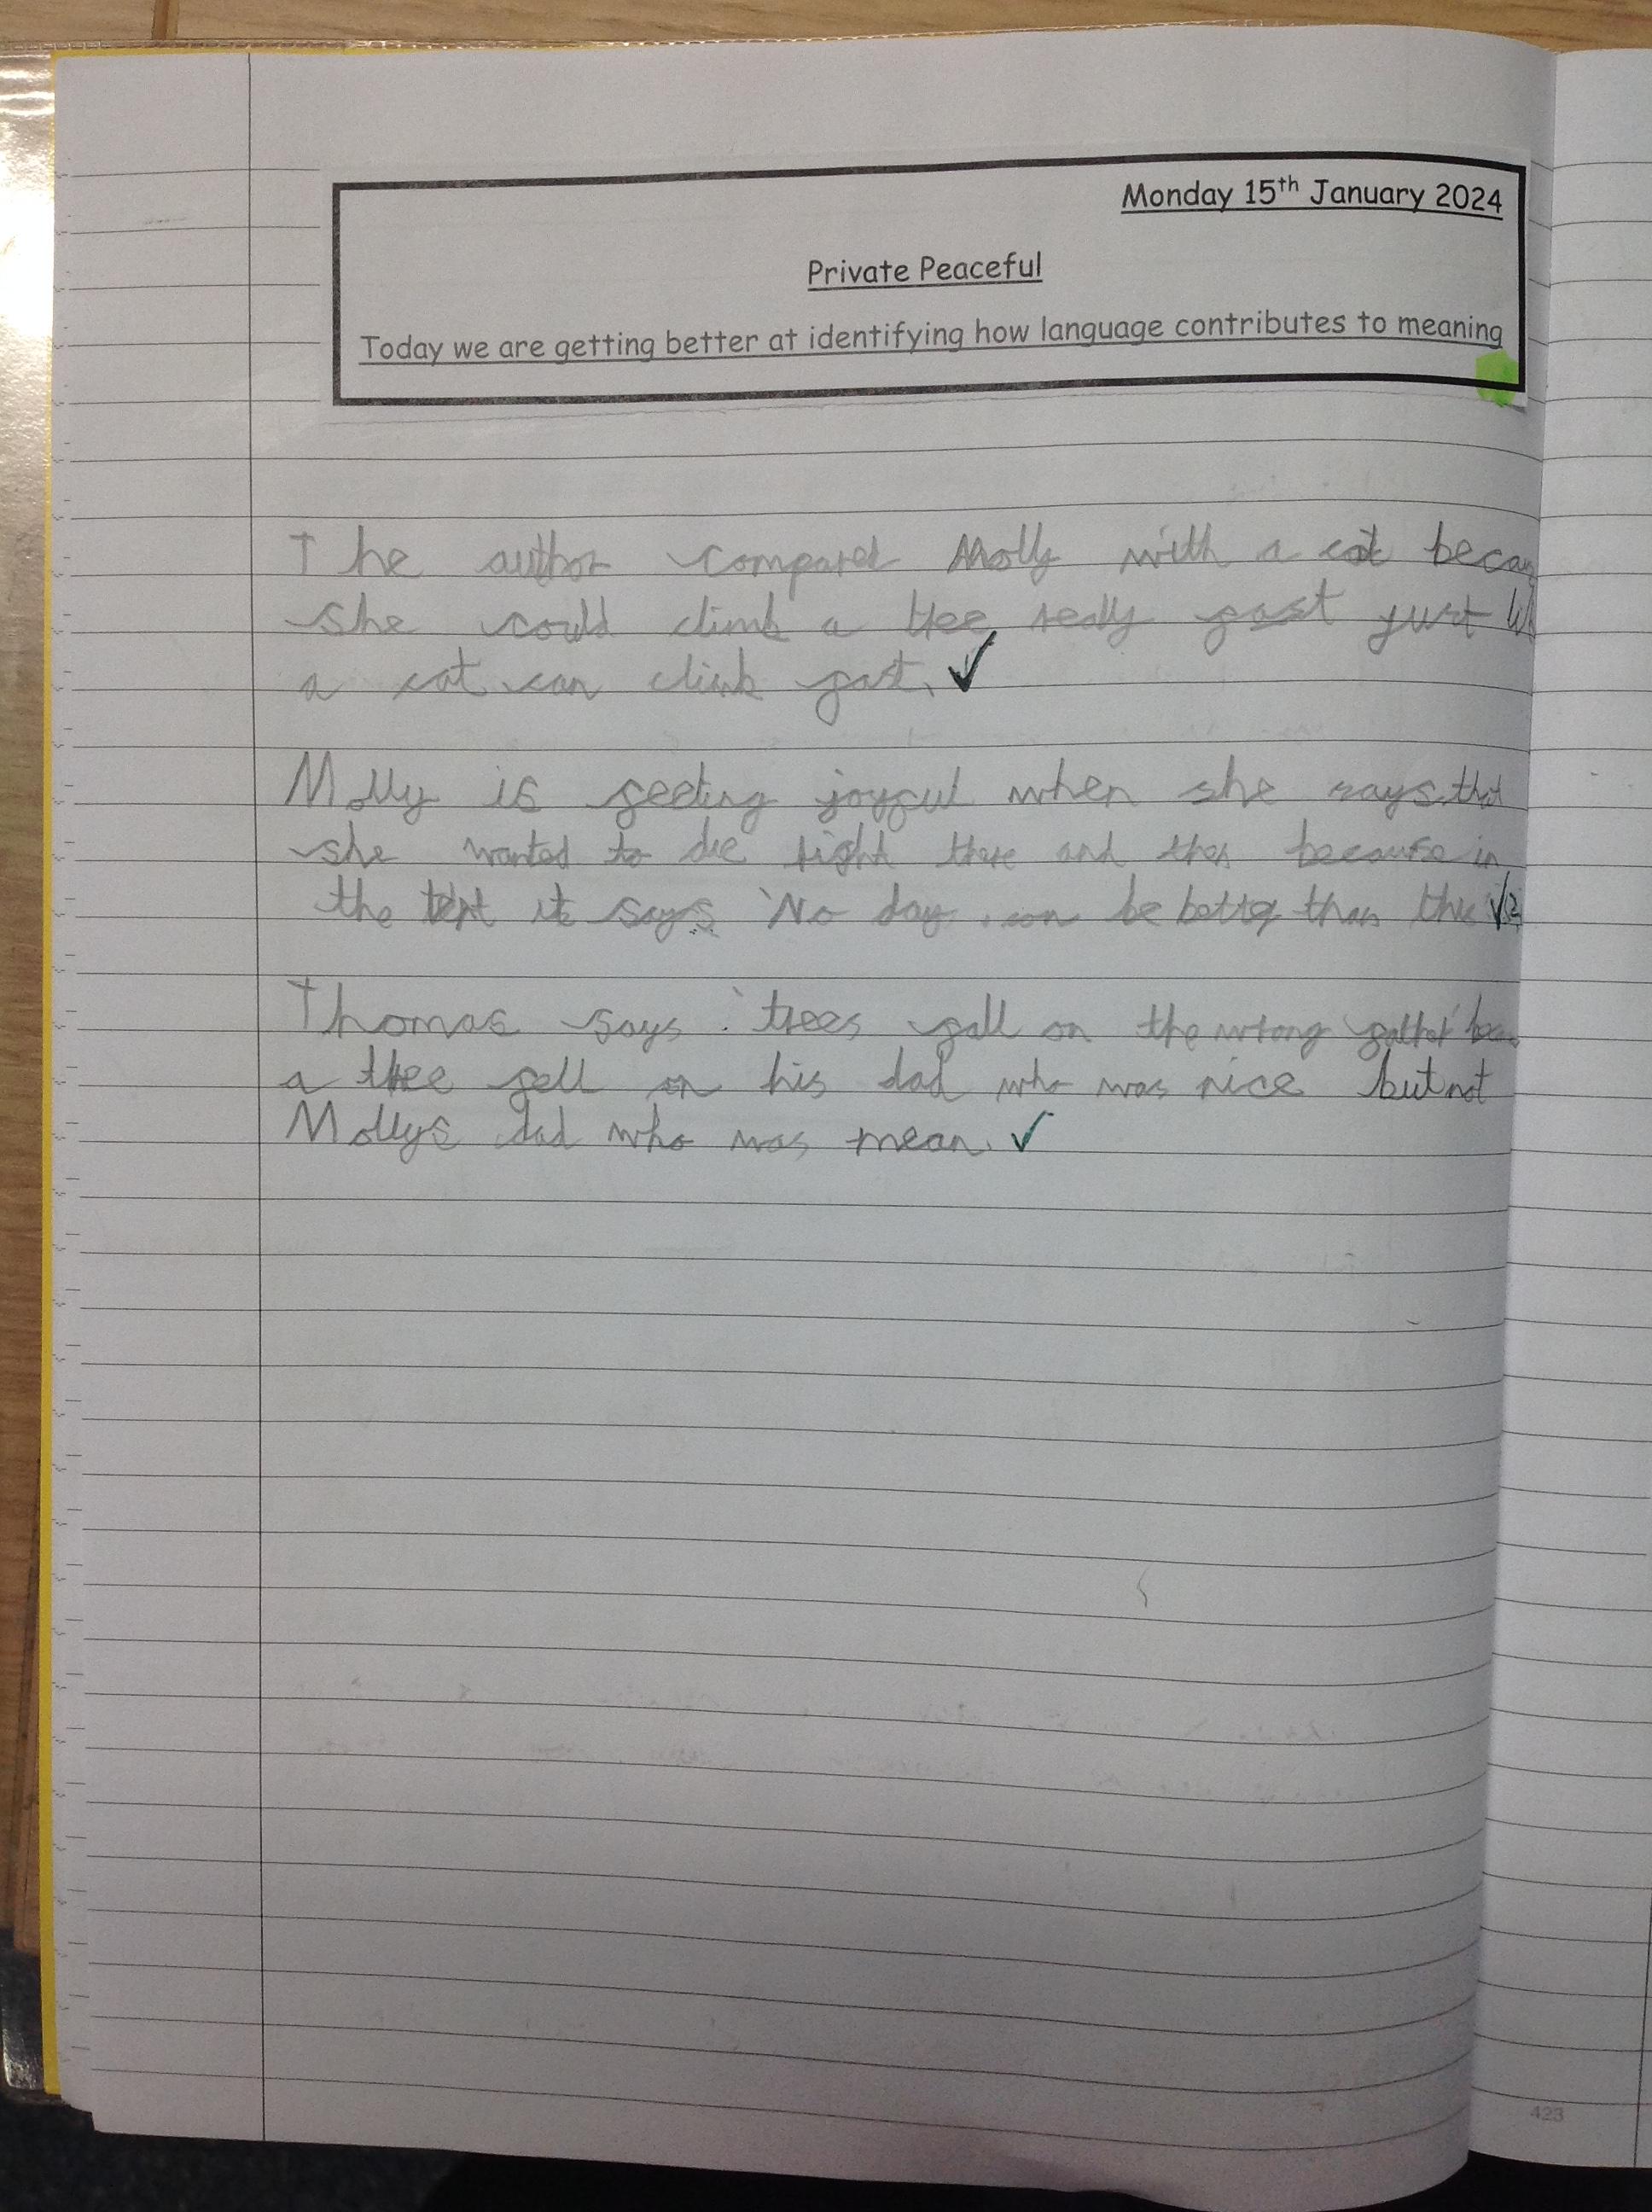 Monday 15th January 2024
Private Peaceful
Today we are getting better at identifying how language contributes to meaning
The author compared Molly with a cat becau
she could climb a tree really fast just li
a cat can climb fast. ✓
Molly is feeling joyful when she says that
she wanted to die right there and then because in
the text it says 'No day can be better than this ✓2
Thomas says 'trees fall on the wrong father' beca
a tree fell on his dad who was nice but not
Mollys dad who was mean. ✓
423